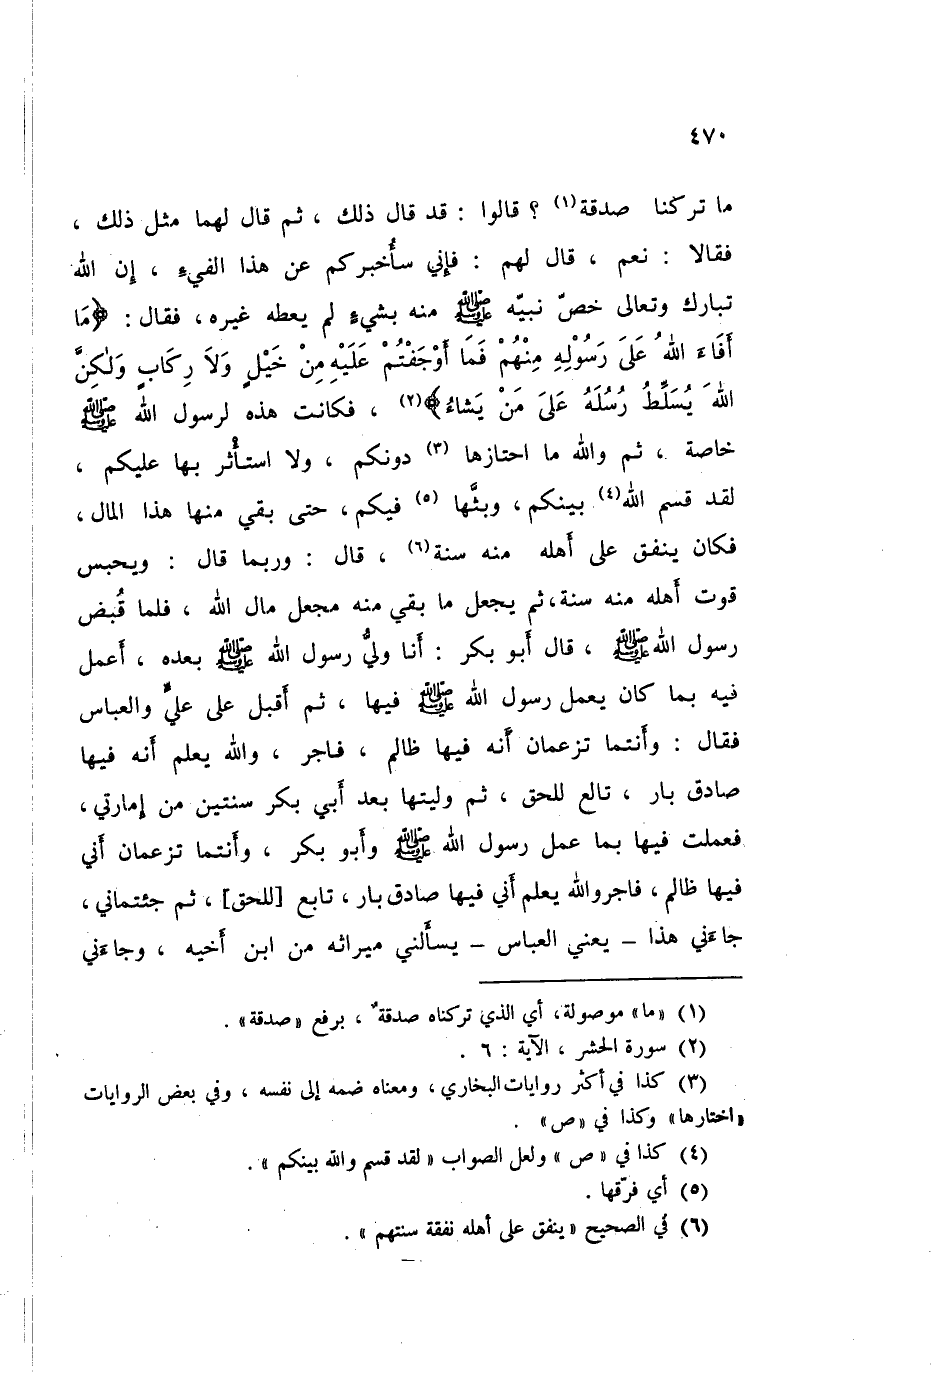 ٤٧٠
ما تركنا صدقة(١) ؟ قالوا : قد قال ذلك ، ثم قال لهما مثل ذلك ،
فقالا : نعم ، قال لهم : فإني سأُخبركم عن هذا الفيءِ ، إن الله
تبارك وتعالى خصّ نبيّه ﷺ منه بشيءٍ لم يعطه غيره ، فقال : ﴿مَا
أَفَاءَ اللهُ عَلَىَ رَسُوْلِهِ مِنْهُمْ فَمَا أَوْجَفْتُمْ عَلَيْهِ مِنْ خَيْلٍ وَلاَ رِكَابٍ وَلٰكِنَّ
اللهَ يُسَلِّطُ رُسُلَهُ عَلىَ مَنْ يَشَاءُ﴾(٢) ، فكانت هذه لرسول الله ﷺ
خاصة ، ثم والله ما احتازها (٣) دونكم ، ولا استأْثر بها عليكم ،
لقد قسم الله(٤) بينكم ، وبثَّها (٥) فيكم ، حتى بقي منها هذا المال ،
فكان ينفق على أَهله منه سنة(٦) ، قال : وربما قال : ويحبس
قوت أَهله منه سنة ، ثم يجعل ما بقي منه مجعل مال الله ، فلما قُبض
رسول الله ﷺ ، قال أَبو بكر : أَنا وليُّ رسول الله ﷺ بعده ، أَعمل
فيه بما كان يعمل رسول الله ﷺ فيها ، ثم أَقبل على عليٍّ والعباس
فقال : وأَنتما تزعمان أَنه فيها ظالم ، فاجر ، والله يعلم أَنه فيها
صادق بار ، تالع للحق ، ثم وليتها بعد أَبي بكر سنتين من إمارتي ،
فعملت فيها بما عمل رسول الله ﷺ وأَبو بكر ، وأَنتما تزعمان أَني
فيها ظالم ، فاجر والله يعلم أَني فيها صادق بار ، تابع [للحق] ، ثم جئتماني ،
جاءَني هذا – يعني العباس – يسأَلني ميراثه من ابن أَخيه ، وجاءَني
(١) «ما» موصولة ، أي الذي تركناه صدقةٌ ، برفع «صدقة» .
(٢) سورة الحشر ، الآية : ٦ .
(٣) كذا في أكثر روايات البخاري ، ومعناه ضمه إلى نفسه ، وفي بعض الروايات
«اختارها» وكذا في «ص» .
(٤) كذا في «ص» ولعل الصواب «لقد قسم والله بينكم» .
(٥) أي فرّقها .
(٦) في الصحيح «ينفق على أهله نفقة سنتهم» .